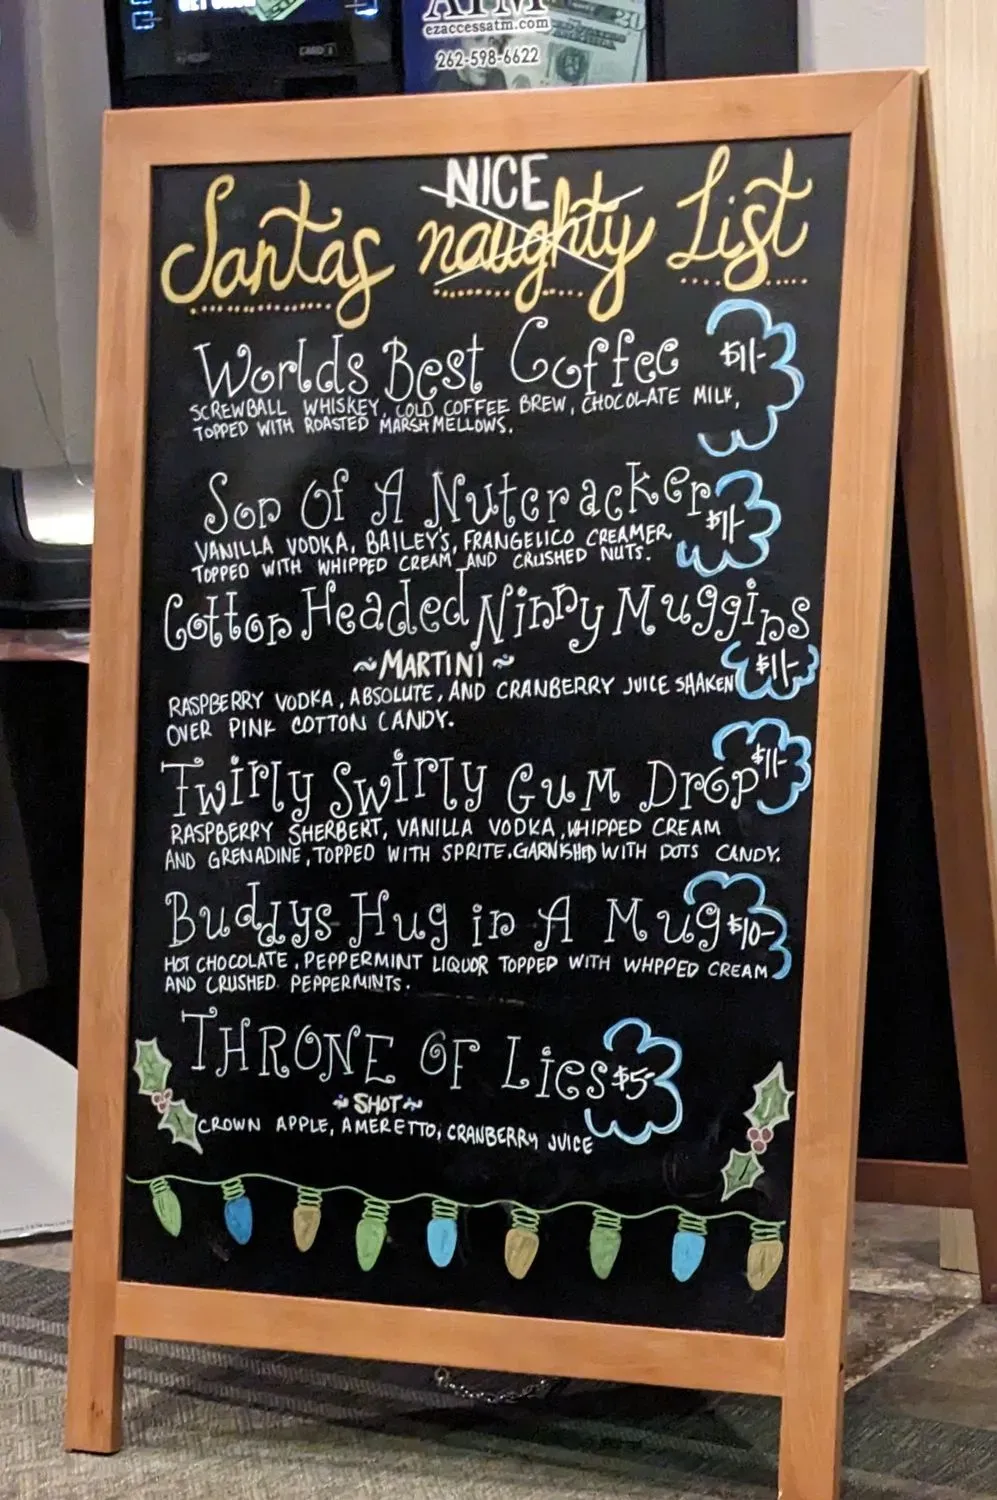 ATM
ezaccessatm.com
262-598-6622
NICE
Santas naughty List
Worlds Best Coffee $11-
SCREWBALL WHISKEY, COLD COFFEE BREW, CHOCOLATE MILK,
TOPPED WITH ROASTED MARSHMELLOWS.
Son Of A Nutcracker $11-
VANILLA VODKA, BAILEY'S, FRANGELICO CREAMER,
TOPPED WITH WHIPPED CREAM AND CRUSHED NUTS.
Cotton Headed Ninny Muggins
~MARTINI~ $11-
RASPBERRY VODKA, ABSOLUTE, AND CRANBERRY JUICE SHAKEN
OVER PINK COTTON CANDY.
Twirly Swirly Gum Drop $11-
RASPBERRY SHERBERT, VANILLA VODKA, WHIPPED CREAM
AND GRENADINE, TOPPED WITH SPRITE. GARNISHED WITH DOTS CANDY.
Buddys Hug in A Mug $10-
HOT CHOCOLATE, PEPPERMINT LIQUOR TOPPED WITH WHPPED CREAM
AND CRUSHED PEPPERMINTS.
THRONE OF Lies $5-
~SHOT~
CROWN APPLE, AMERETTO, CRANBERRY JUICE